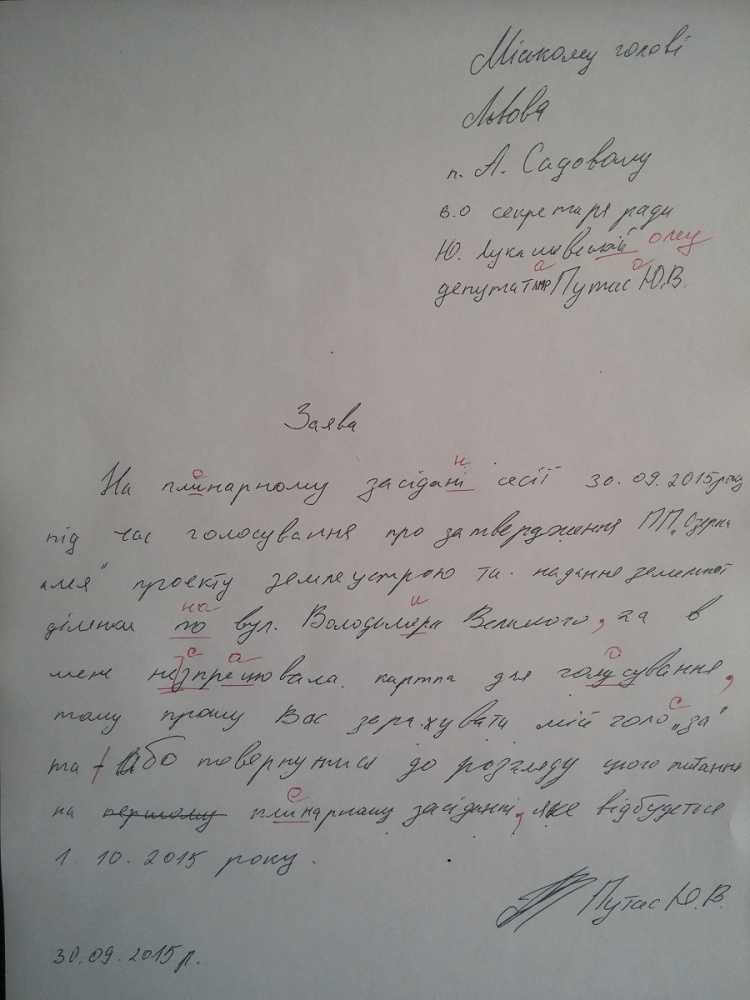 Міському голові
Львова
п. А. Садовому
в.о секретаря ради
Ю. Лукашевській олеу
а а
депутат ЛМР Путас Ю.В.
Заява
е н
На плинарному засідані сесії 30.09.2015року
під час голосування про затвердження ПП „Озерна
алея" проекту землеустрою та надання земельної
на и
ділянки по вул. Володимера Великого, за в
с а о
мене незпрецювала картка для голусування,
с
тому прошу Вас зарахувати мій голо „за"
та або повернутися до розгляду цього питання
е
на першому плинарному засіданні, яке відбудеться
1. 10. 2015 року.
Путас Ю.В.
30.09.2015р.